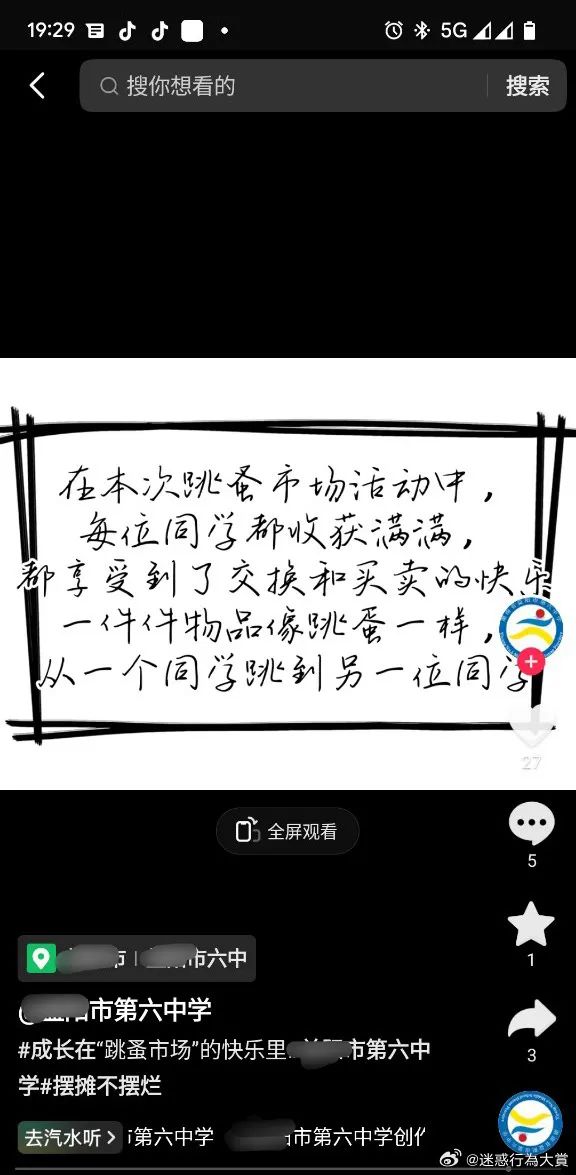 19:29
5G
搜你想看的
搜索
在本次跳蚤市场活动中，
每位同学都收获满满，
都享受到了交换和买卖的快乐
一件件物品像跳蛋一样，
从一个同学跳到另一位同学
27
全屏观看
5
1
市 | 市六中
@市第六中学
#成长在“跳蚤市场”的快乐里 市第六中
学#摆摊不摆烂
3
去汽水听 >
市第六中学 市第六中学创作
@迷惑行為大賞